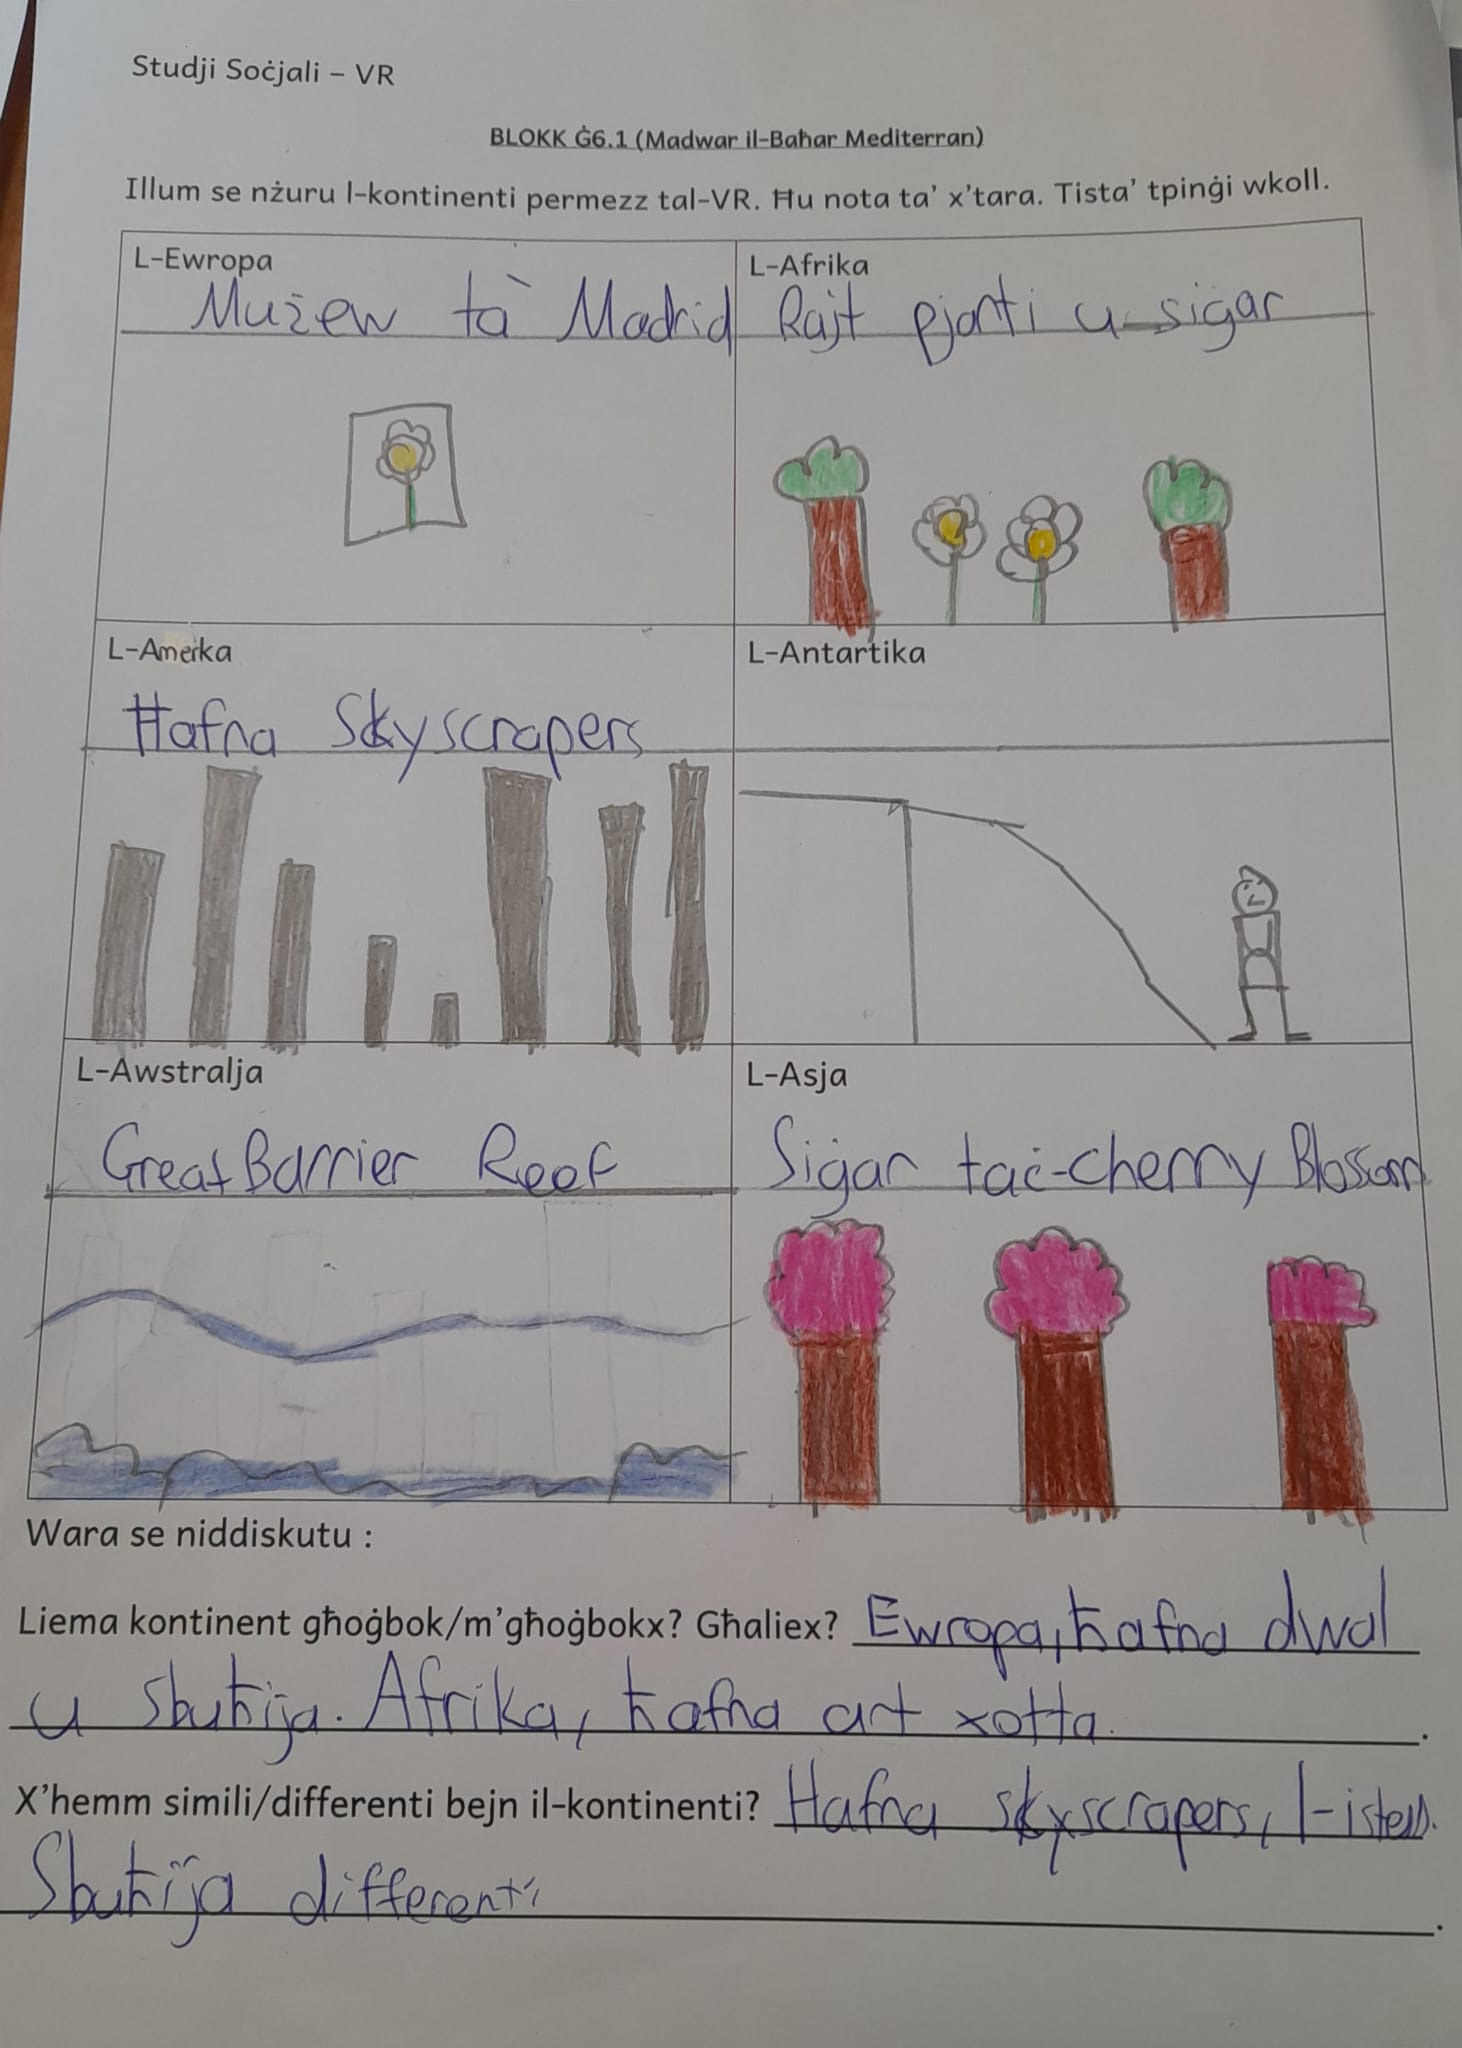 Studji Soċjali – VR
BLOKK Ġ6.1 (Madwar il-Baħar Mediterran)
Illum se nżuru l-kontinenti permezz tal-VR. Ħu nota ta' x'tara. Tista' tpinġi wkoll.
L-Ewropa
Mużew ta' Madrid
L-Afrika
Rajt pjanti u siġar
L-Amerka
Ħafna Skyscrapers
L-Antartika
L-Awstralja
Great Barrier Reef
L-Asja
Siġar taċ-cherry Blossom
Wara se niddiskutu :
Liema kontinent għoġbok/m'għoġbokx? Għaliex? Ewropa, ħafna dwal
u sbuħija. Afrika, ħafna art xotta.
X'hemm simili/differenti bejn il-kontinenti? Ħafna skyscrapers, l-istess.
Sbuħija differenti